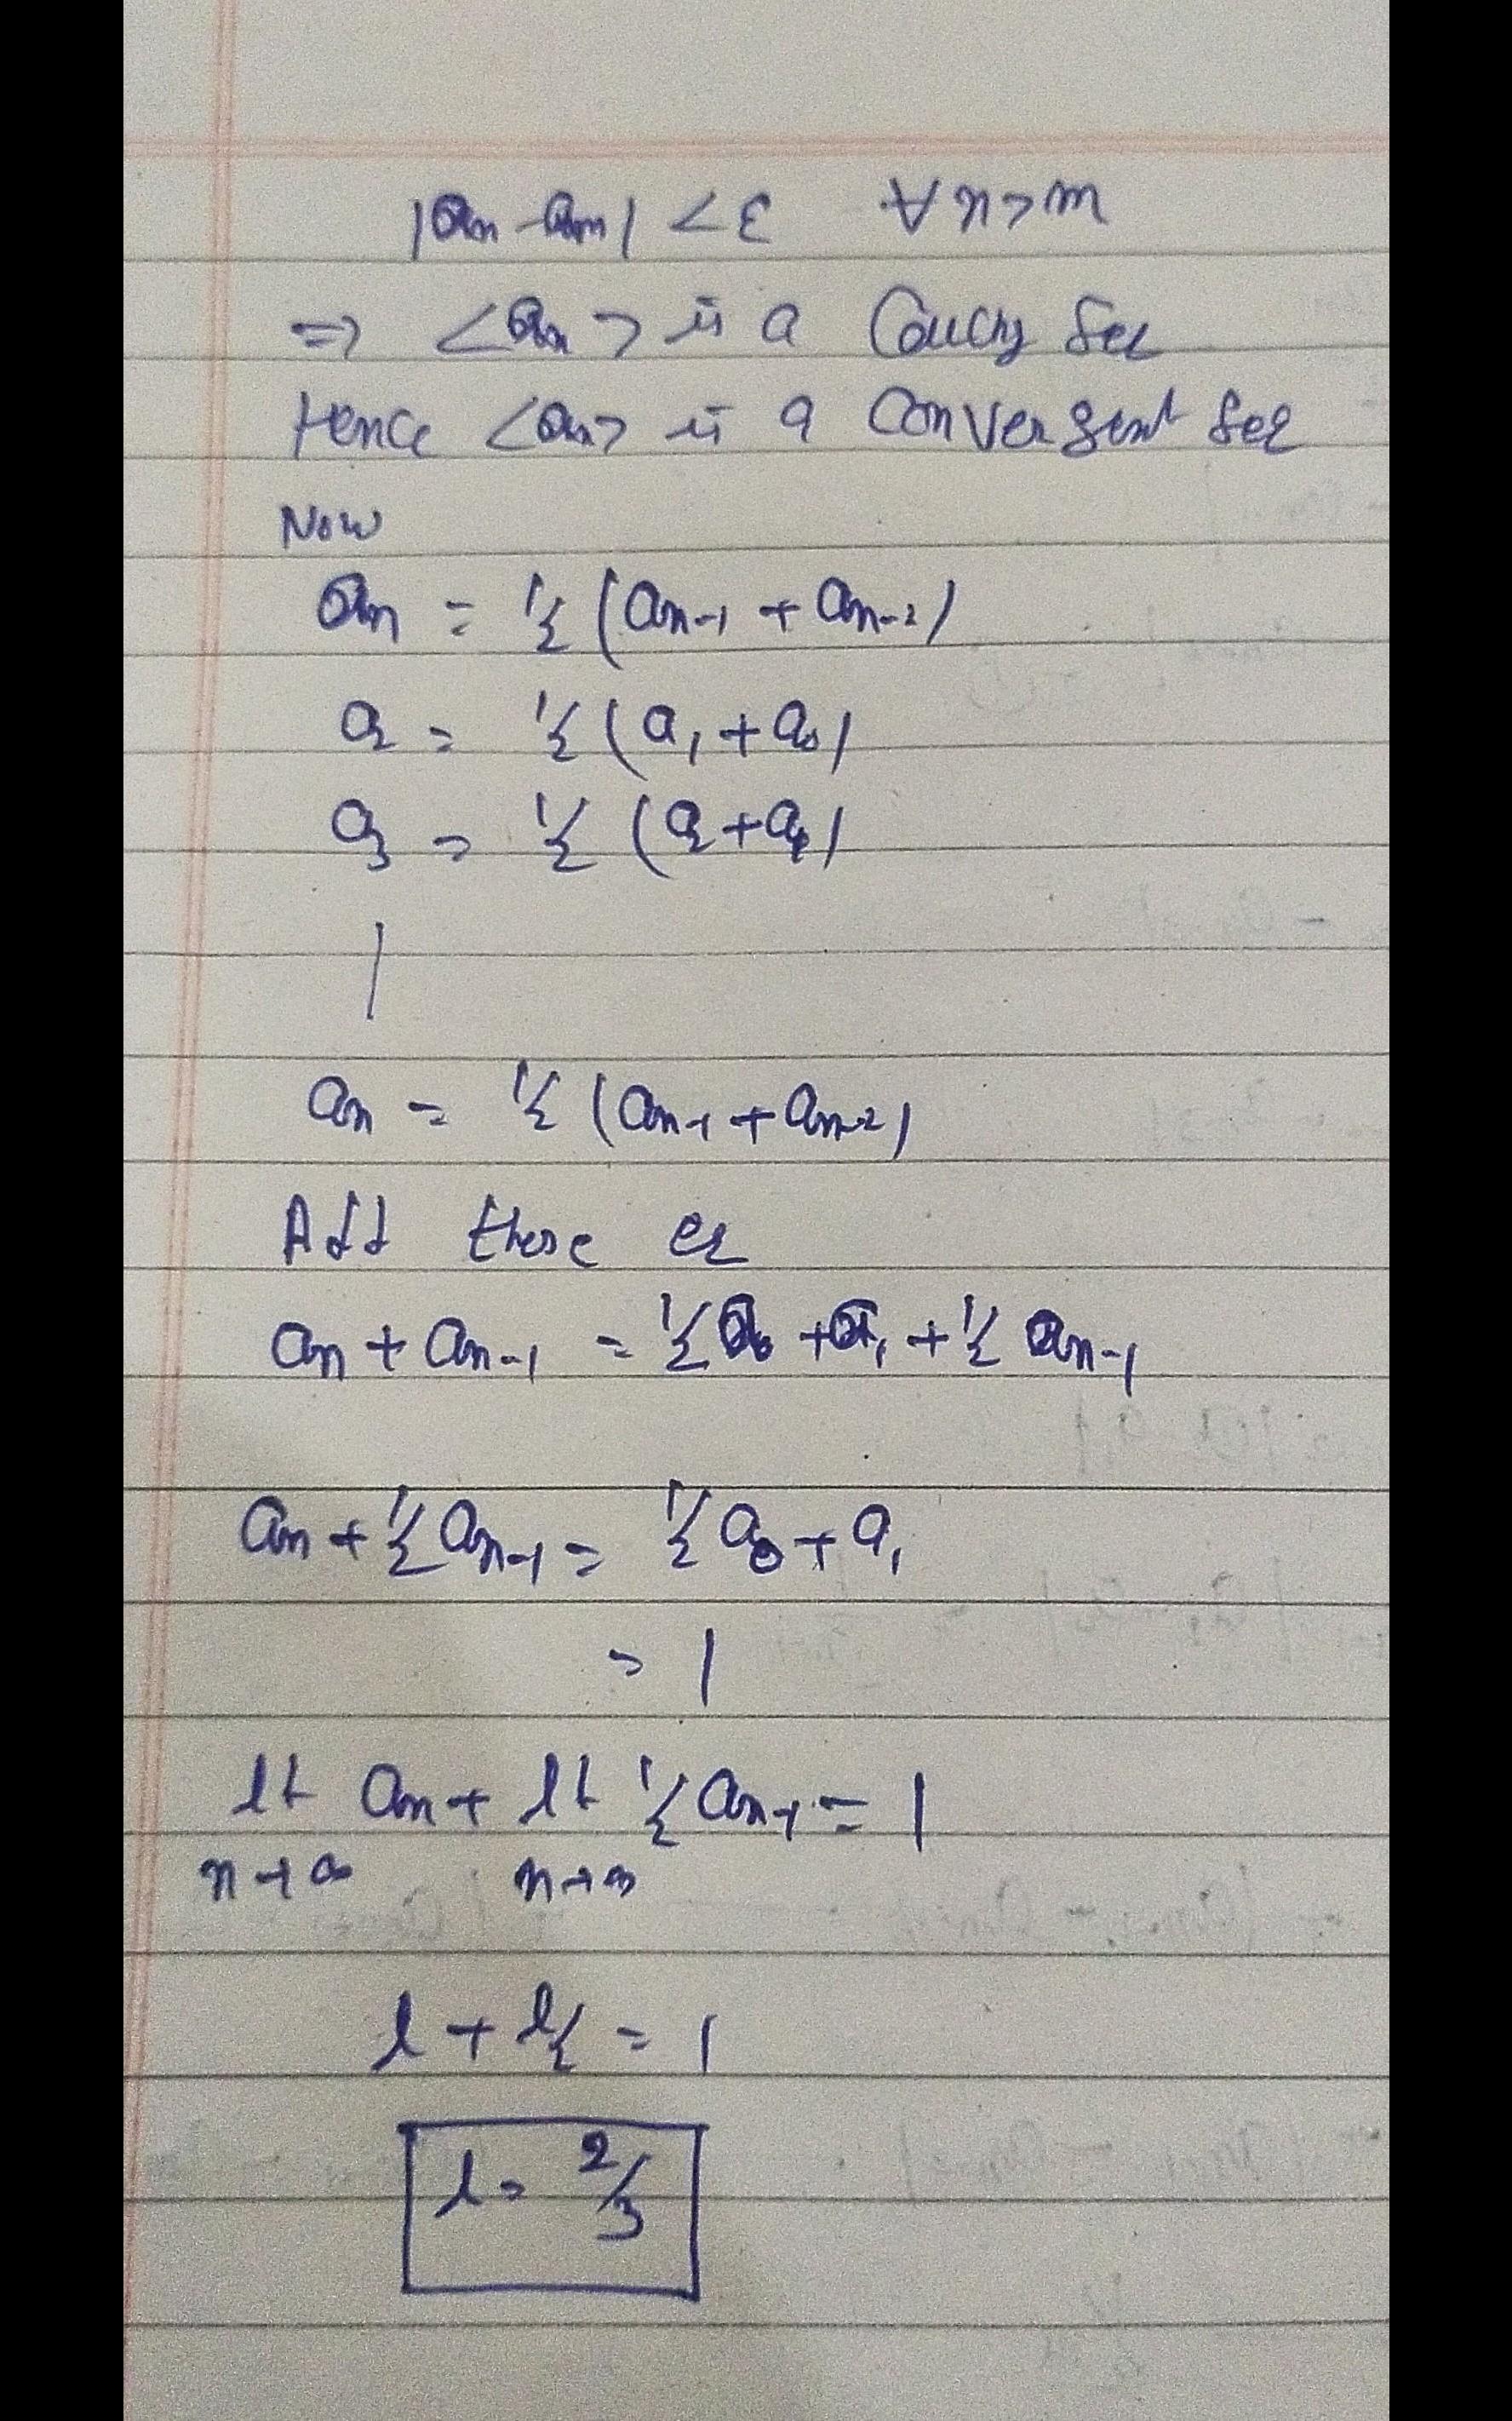 |an - am| < ε ∀ n > m
⇒ <an> is a Caucy Seq
Hence <an> is a Convergent Seq
Now
an = 1/2 (an-1 + an-2)
a2 = 1/2 (a1 + a0)
a3 = 1/2 (a2 + a1)
|
an = 1/2 (an-1 + an-2)
Add these eq
an + an-1 = 1/2 a0 + a1 + 1/2 an-1
an + 1/2 an-1 = 1/2 a0 + a1
= 1
lt an + lt 1/2 an-1 = 1
n→∞ n→∞
l + l/2 = 1
l = 2/3